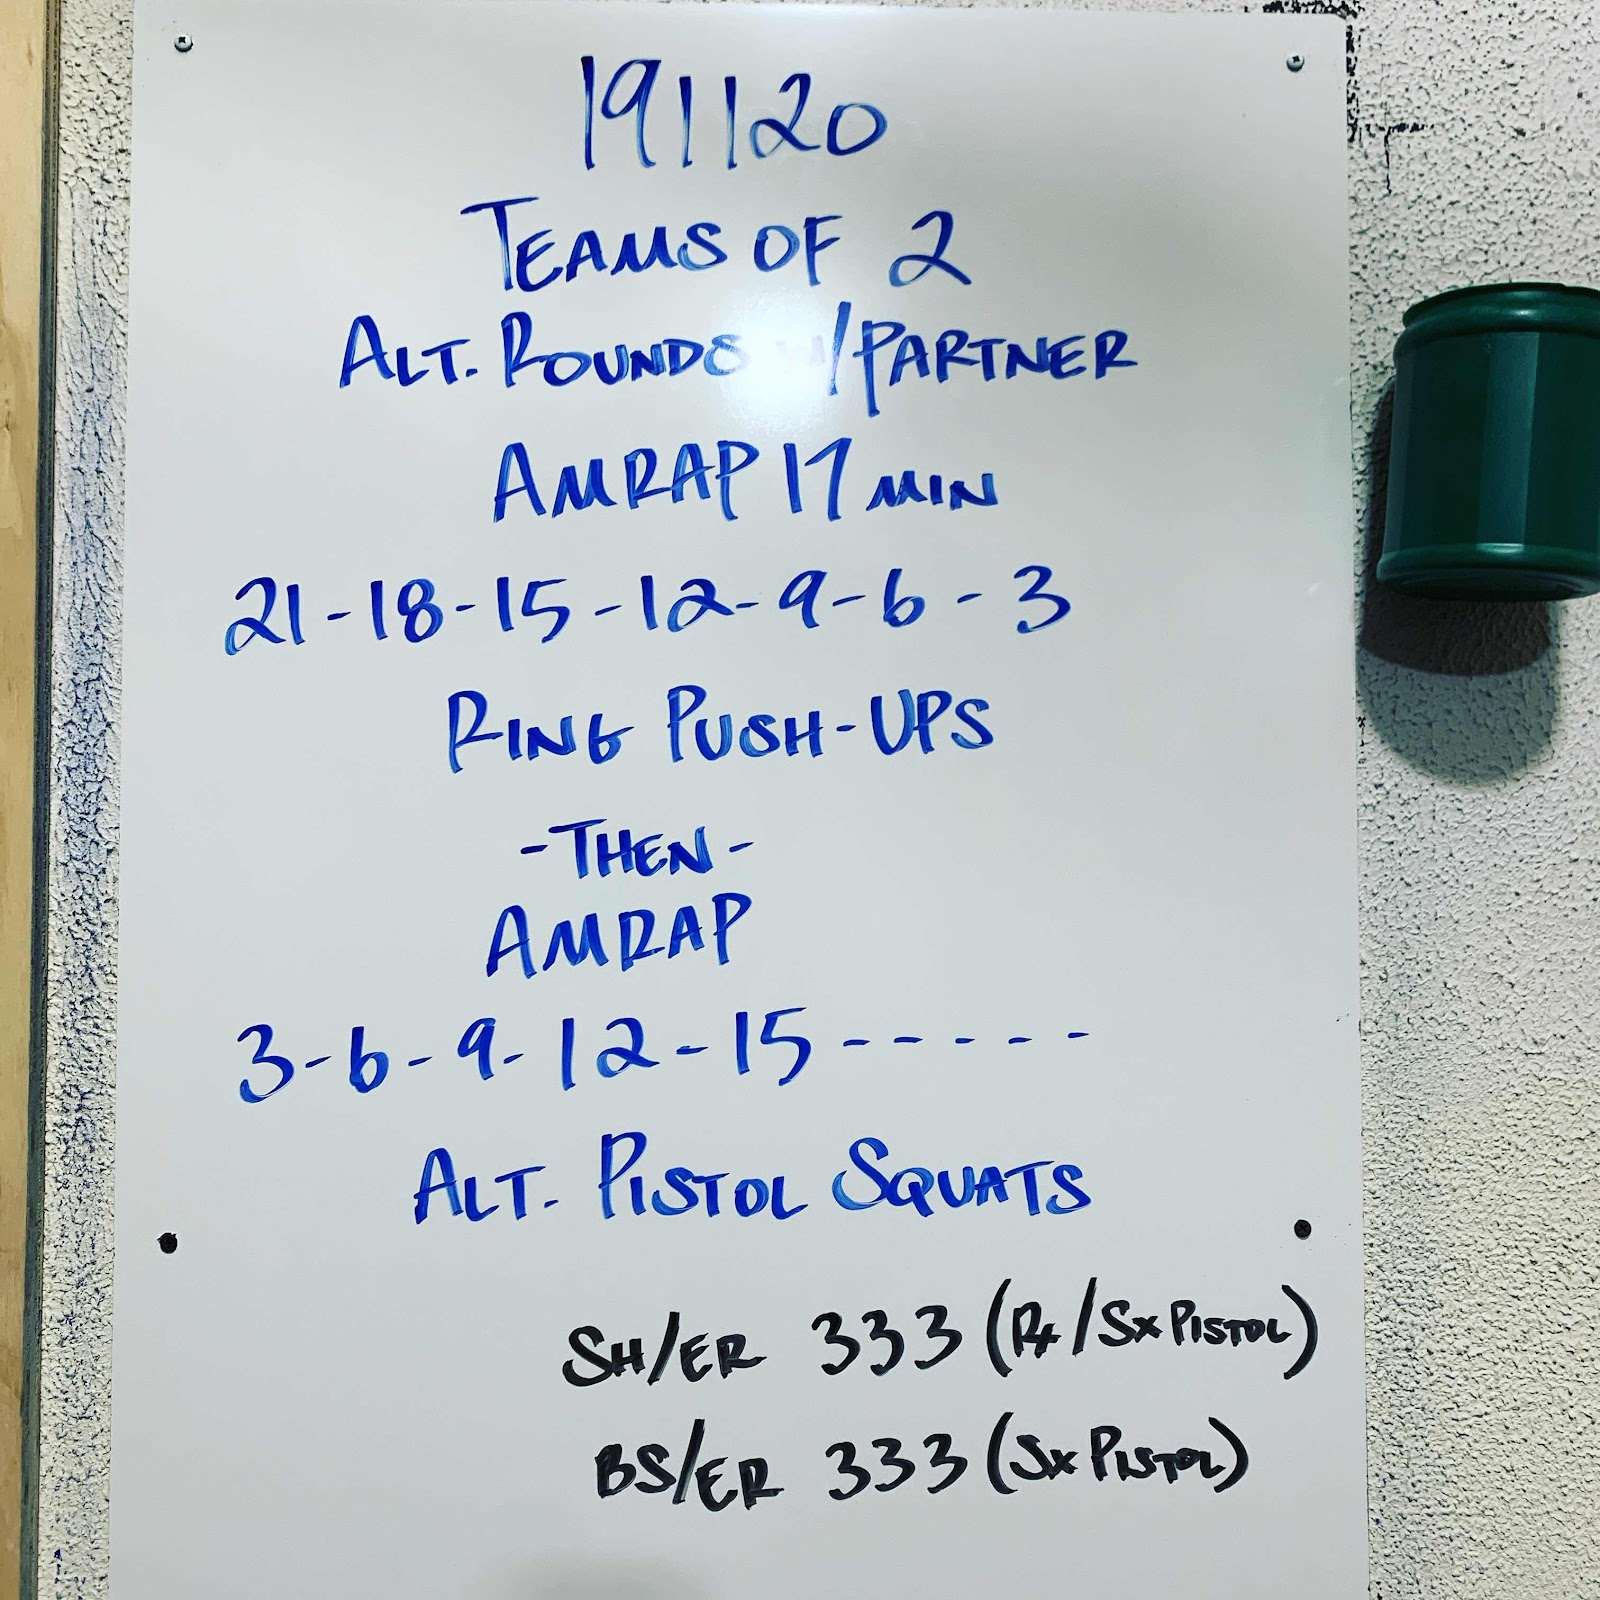 191120
TEAMS OF 2
ALT. ROUNDS W/PARTNER
AMRAP 17 MIN
21-18-15-12-9-6-3
RING PUSH-UPS
-THEN-
AMRAP
3-6-9-12-15-----
ALT. PISTOL SQUATS
SH/ER 333 (Rx/Sx PISTOL)
BS/ER 333 (Sx PISTOL)